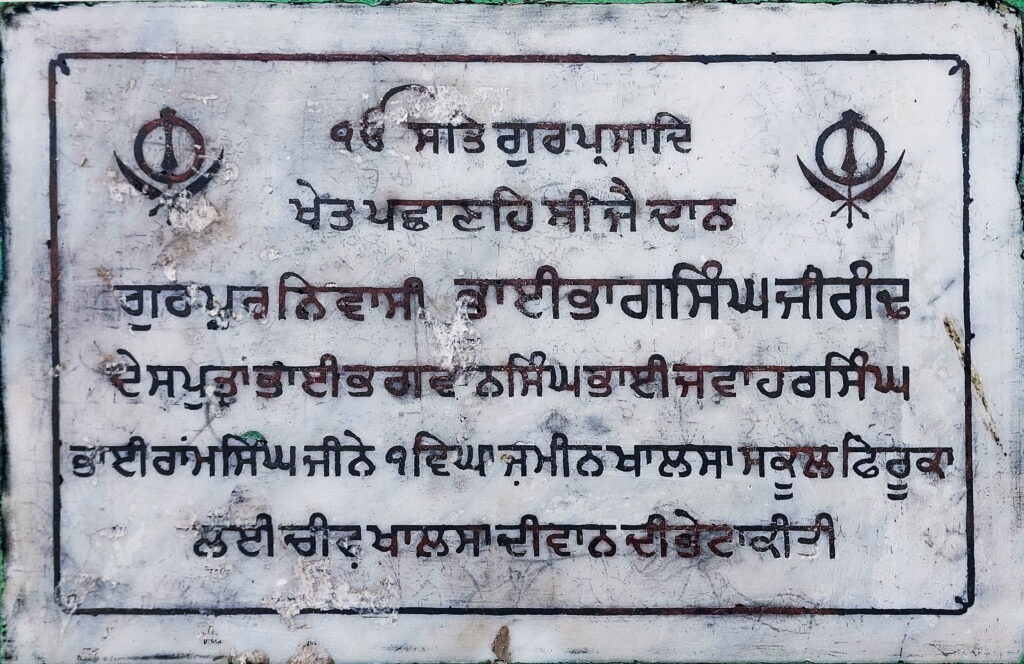 ੴ ਸਤਿ ਗੁਰ ਪ੍ਰਸਾਦਿ
ਖੇਤ ਪਛਾਣਹਿ ਬੀਜੈ ਦਾਨ
ਨਿਵਾਸੀ ਭਾਈ ਭਾਗ ਸਿੰਘ ਜੀ ਰੀਂਢ
ਦੇ ਸਪੁਤ੍ਰਾਂ ਭਾਈ ਭਗਵਾਨ ਸਿੰਘ ਭਾਈ ਜਵਾਹਰ ਸਿੰਘ
ਭਾਈ ਰਾਮ ਸਿੰਘ ਜੀ ਨੇ ੧ ਵਿਘਾ ਜ਼ਮੀਨ ਖਾਲਸਾ ਸਕੂਲ ਫਿਰੂਕਾ
ਲਈ ਚੀਫ਼ ਖਾਲਸਾ ਦੀਵਾਨ ਦੀ ਭੇਟਾ ਕੀਤੀ